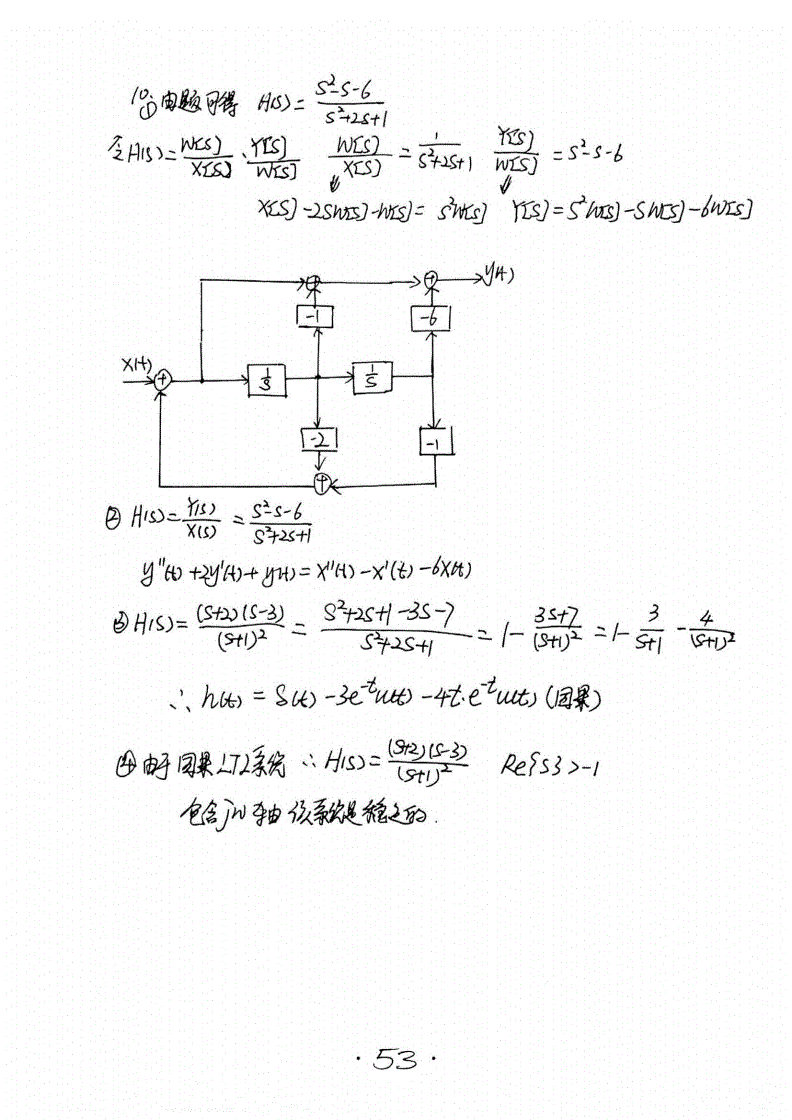 10. ① 由题可得 H(s)= (s²-s-6)/(s²+2s+1)
令H(s)= W[s]/X[s] · Y[s]/W[s]   W[s]/X[s] = 1/(s²+2s+1)   Y[s]/W[s] = s²-s-6
X[s]-2sW[s]-W[s]= s²W[s]   Y[s]=s²W[s]-sW[s]-6W[s]
+ + y(t)
-1 -6
x(t) + 1/s 1/s
-2 -1
+
② H(s)= Y(s)/X(s) = (s²-s-6)/(s²+2s+1)
y''(t)+2y'(t)+y(t)=x''(t)-x'(t)-6x(t)
③ H(s)= (s+2)(s-3)/(s+1)² = (s²+2s+1-3s-7)/(s²+2s+1) = 1- (3s+7)/(s+1)² = 1- 3/(s+1) - 4/(s+1)²
∴ h(t) = δ(t)-3e^{-t}u(t)-4t·e^{-t}u(t) (因果)
④ 由于因果LTI系统 ∴ H(s)= (s+2)(s-3)/(s+1)²   Re{s}>-1
包含jw轴 该系统是稳定的.
· 53 ·